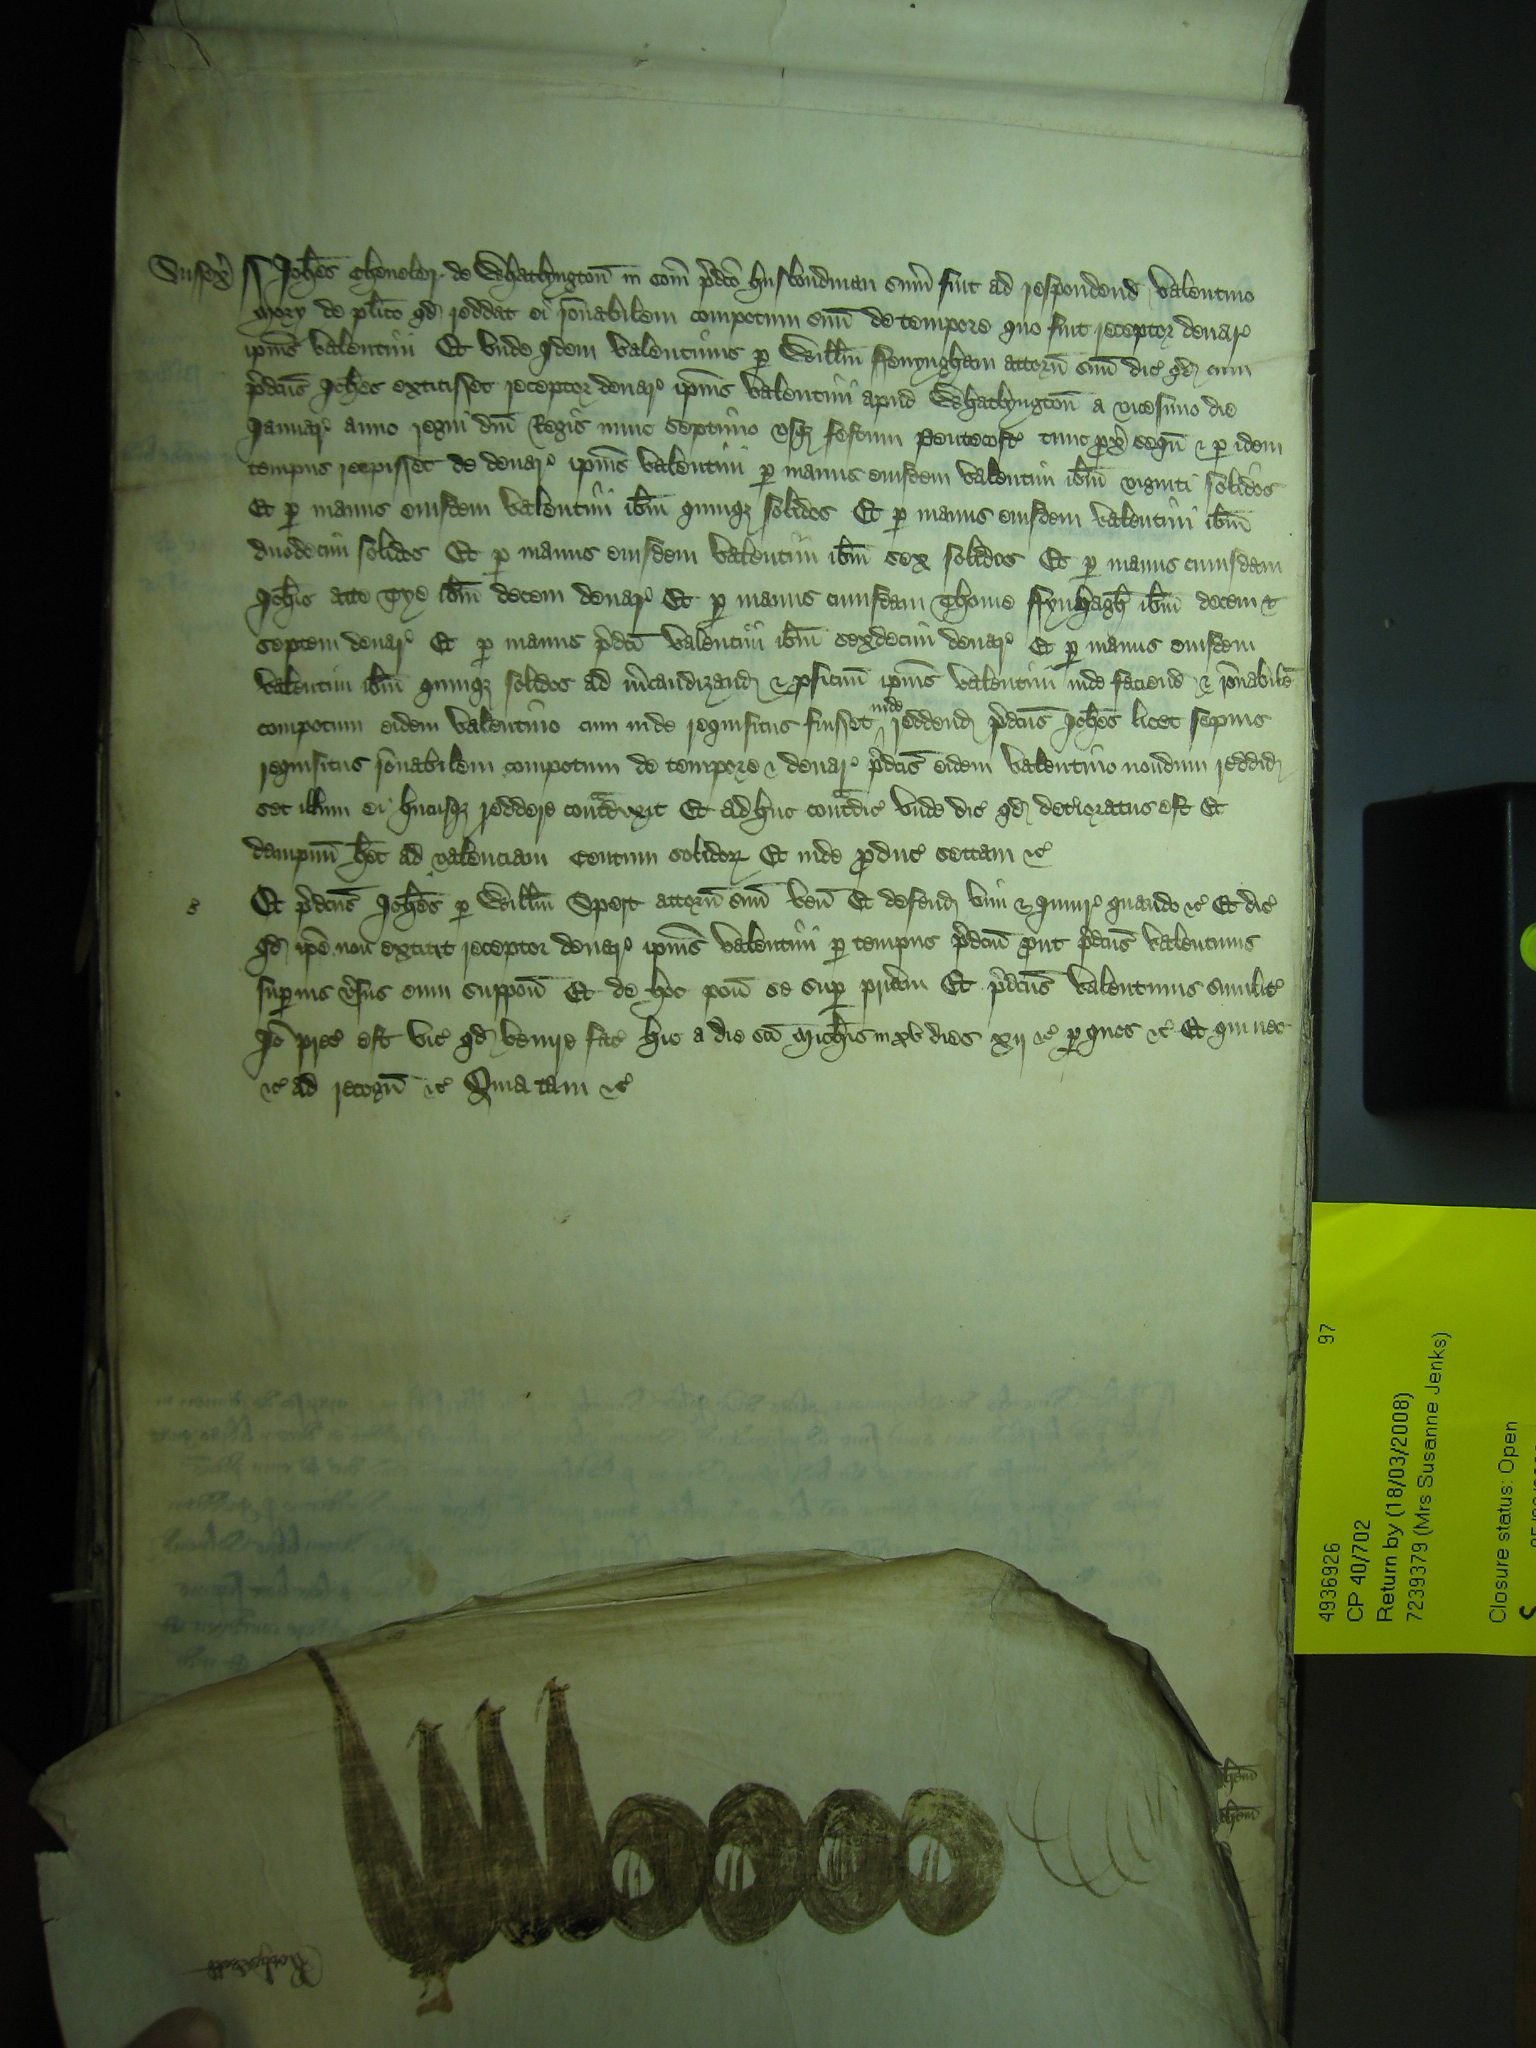 Sussex̉ Joh̄es Cheneler de Whatlyngton̄ in com̄ p̄dc̄o husbondman sum̄ fuit ad respondend Valentino
Mory de pl̄ito qd reddat ei rōnabilem compotum suū de tempore quo fuit receptor denar̉
ip̄ius Valentini Et vnde idem Valentinus p Willm̄ Ffenyngham attorn̄ suū dic̉ qd cum
p̄dcūs Joh̄es extitisset receptor denar̉ ip̄ius Valentini apud Whatlyngton̄ a vicesimo die
Januar̉ anno regni dn̄i Regis nunc septimo vsq̨ festum Pentecost̉ tunc prox̉ seqū & p idem
tempus recepisset de denar̉ ip̄ius Valentini p manus eiusdem Valentini ibm̄ viginti solidos
Et p manus eiusdem Valentini ibm̄ quinq̨ solidos Et p manus eiusdem Valentini ibm̄
duodecim solidos Et p manus eiusdem Valentini ibm̄ sex solidos Et p manus cuiusdam
Joh̄is atte Tye ibm̄ decem denar̉ Et p manus cuiusdam Thome Ffynhagh̄ ibm̄ decem &
septem denar̉ Et p manus p̄dcī Valentini ibm̄ sexdecim denar̉ Et p manus eiusdem
Valentini ibm̄ quinq̨ solidos ad m̄candizand & pficuū ip̄ius Valentini inde faciend & rōnabilē
compotum eidem Valentino cum inde requisitus fuisset inde reddend p̄dcūs Joh̄es licet sepius
requisitus rōnabilem compotum de tempore & denar̉ p̄dcīs eidem Valentino nondum reddid
set illum ei hucusq̨ reddere contᵃdixit Et adhuc contᵃdic̉ vnde dic̉ qd det̉ioratus est Et
dampnū h̄et ad valenciam centum solidoꝝ Et inde produc̉ sectam &c̉
Et p̄dcūs Joh̄es p Willm̄ Spert attorn̄ suū ven̄ Et defend vim & iniur̉ quando &c̉ Et dic̉
qd ip̄e non extitit receptor denar̉ ip̄ius Valentini p tempus p̄dcūm put p̄dcūs Valentinus
supius v̉sus eum suppon̄ Et de hoc pon̄ se sup pr̄iam Et p̄dcūs Valentinus similit̉
Jō prec̉ est vic̉ qd venire fac̉ hic a die scī Mich̄is in xv dies xij &c̉ p quos &c̉ Et qui nec
&c̉ ad recogn̄ &c̉ Quia tam &c̉
4936926 97
CP 40/702
Return by (18/03/2008)
7239379 (Mrs Susanne Jenks)
Closure status: Open